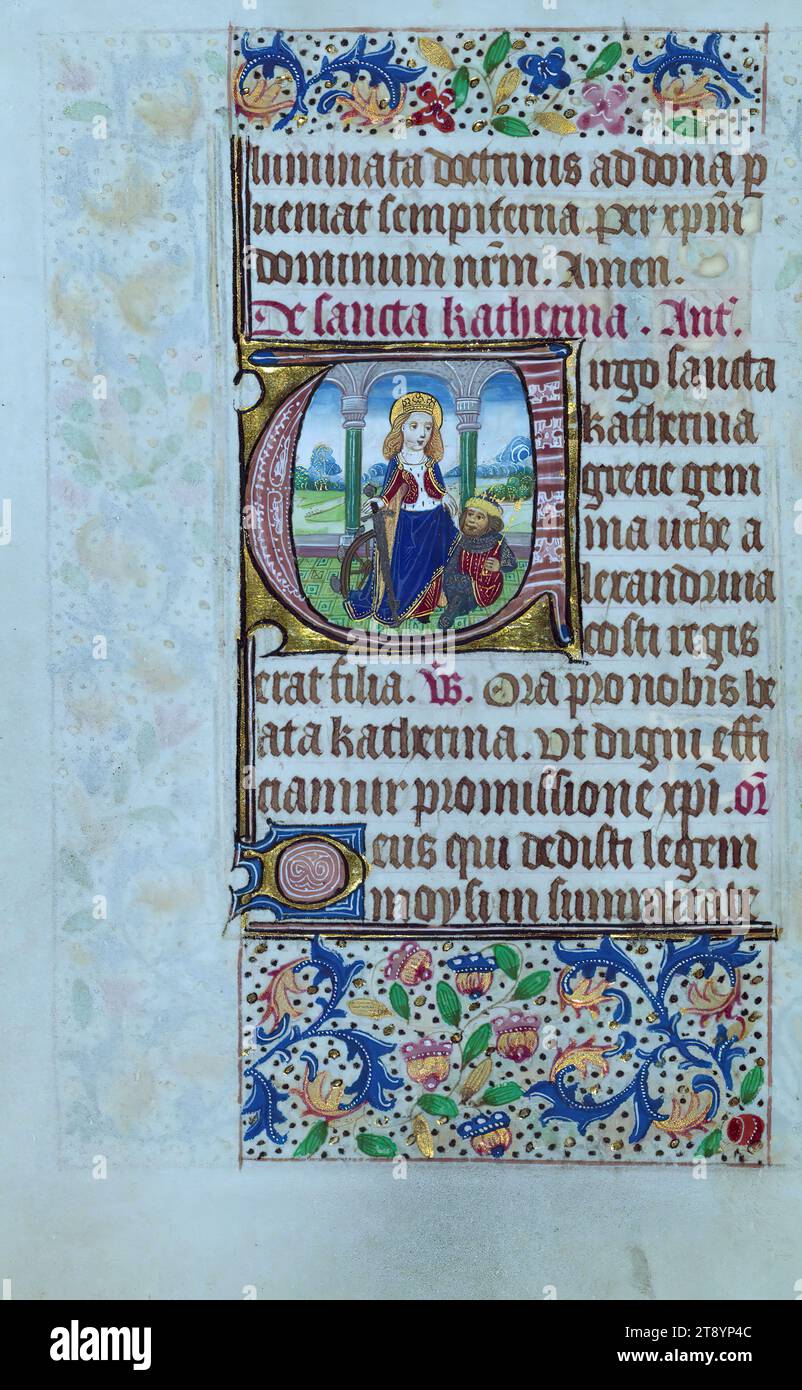 luminata doctrinis ad dona p
ueniat sempiterna. per xpm
dominum nrm. Amen.
De sancta katherina. Ant.
Virgo sancta
katherina
grecie gem
ma urbe a
lexandrina
costi regis
erat filia. Vs. Ora pro nobis be
ata katherina. Ut digni effi
ciamur promissione xpi. or
Deus qui dedisti legem
moysi in summitate
alamy
Image ID: 2T8YP4C
www.alamy.com